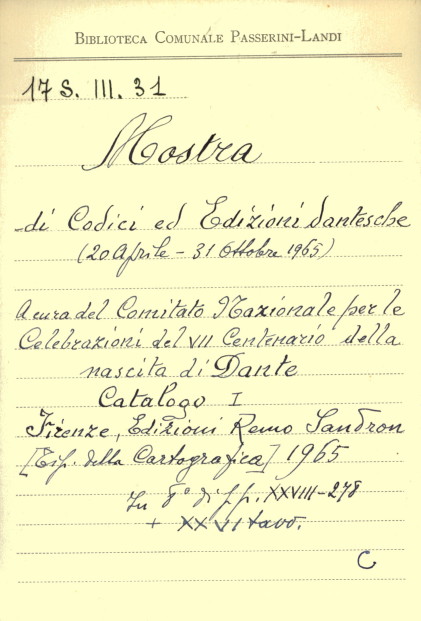 BIBLIOTECA COMUNALE PASSERINI-LANDI
17 S. III. 31
Mostra
di Codici ed Edizioni dantesche
(20 Aprile - 31 Ottobre 1965)
A cura del Comitato Nazionale per le
Celebrazioni del VII Centenario della
nascita di Dante
Catalogo I
Firenze, Edizioni Remo Sandron
[Tip. della Cartografica] 1965
In 8° di pp. XXVIII-278
+ XXVI tavo.
C